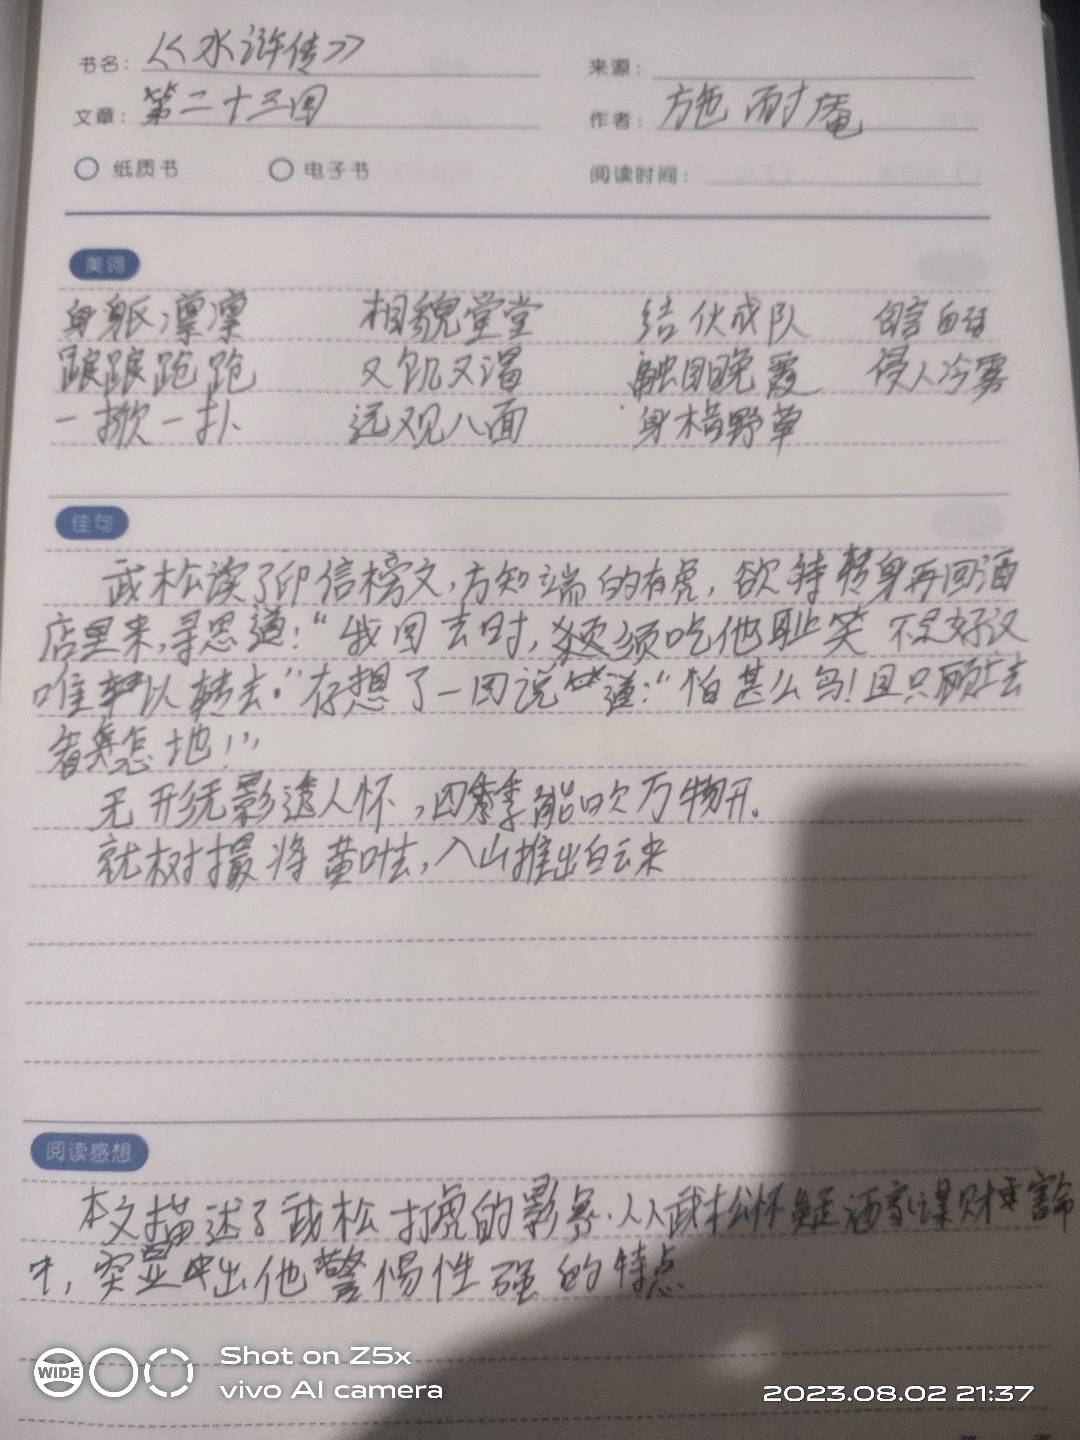 书名：《水浒传》
来源：
文章：第二十三回
作者：施耐庵
纸质书 电子书 阅读时间：
美词
身躯凛凛 相貌堂堂 结伙成队 自言自语
踉踉跄跄 又饥又渴 触目晚霞 侵人冷雾
一掀一扑 远观八面 身横野草
佳句
武松读了印信榜文，方知端的有虎，欲待转身再回酒
店里来，寻思道：“我回去时，须吃他耻笑 不是好汉
难以转去。”存想了一回说道：“怕甚么鸟！且只顾上去
看怎地！”
无形无影透人怀，四季能吹万物开。
就树撮将黄叶去，入山推出白云来
阅读感想
本文描述了武松打虎的 从武松怀疑酒家谋财害命
中，突显出他警惕性强的特点
WIDE
Shot on Z5x
vivo AI camera
2023.08.02 21:37